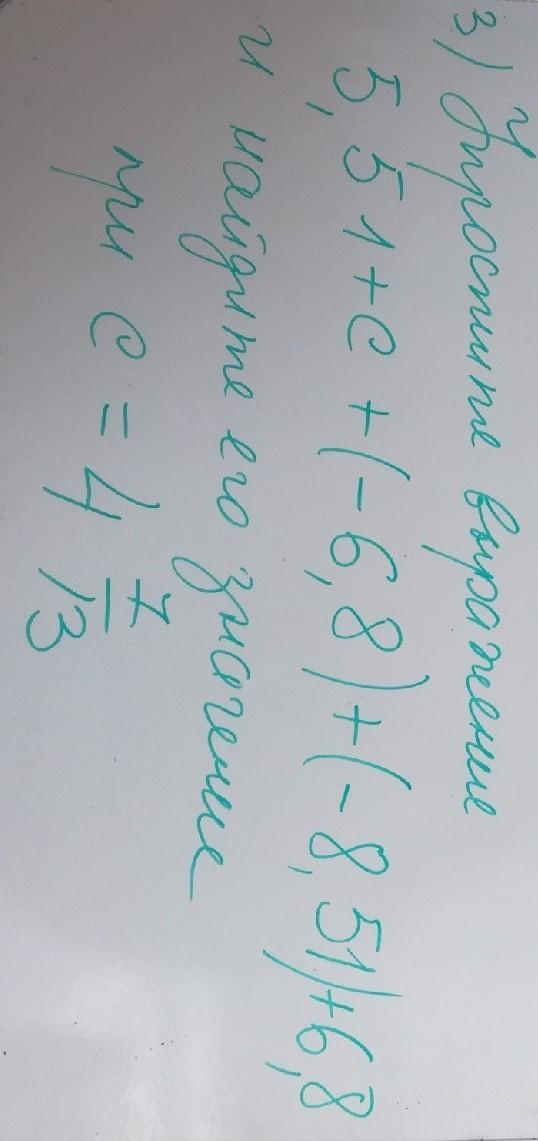 3) Упростите выражение
5,51+c+(-6,8)+(-8,51)+6,8
и найдите его значение
при c = 4 7/13